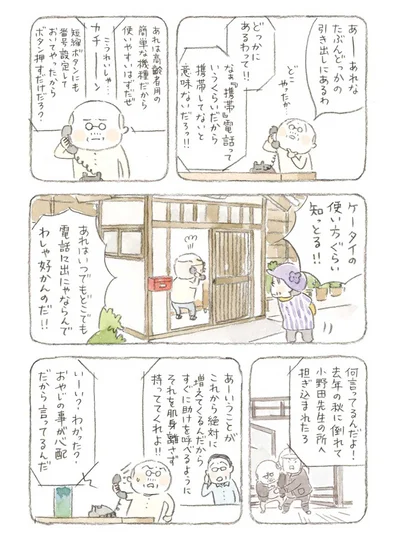 あーあれな
たぶんどっかの
引き出しにあるわ
ど…やったか
どっかに
あるわって!!
なぁ“携帯”電話って
いうくらいだから
携帯してないと
意味ないだろっ!!
あれは高齢者用の
簡単な機種だから
使いやすいはずだぜ
こうれいしゃ…
カチーン
短縮ボタンにも
番号設定して
おいてやったから
ボタン押すだけだろ?
ケータイの
使い方ぐらい
知っとる!!
あれはいつでもどこでも
電話に出にゃならんで
わしゃ好かんのだ!!
何言ってるんだよ!
去年の秋に倒れて
小野田先生の所へ
担ぎ込まれたろ
あーいうことが
これから絶対に
増えてくるんだから
すぐに助けを呼べるように
それを肌身離さず
持っててくれよ!!
いーい?わかった?
おやじの事が心配
だから言ってるんだ